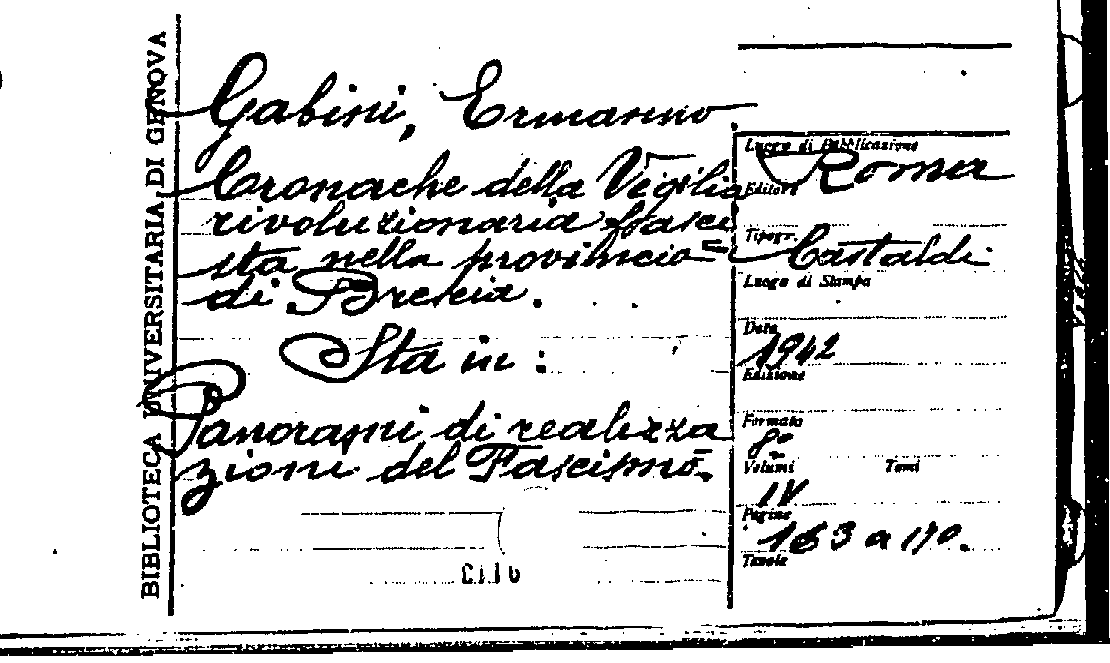 BIBLIOTECA UNIVERSITARIA DI GENOVA
Gabini, Ermanno
Cronache della Vigilia
rivoluzionaria fasci
sta nella provincia=
di Brescia.
Sta in:
Panorami di realizza
zioni del Fascismo.
Luogo di Pubblicazione
Roma
Editore
Tipogr.
Castaldi
Luogo di Stampa
Data
1942
Edizione
Formato
8º
Volumi Tomi
IV
Pagine
163 a 170.
Tavole